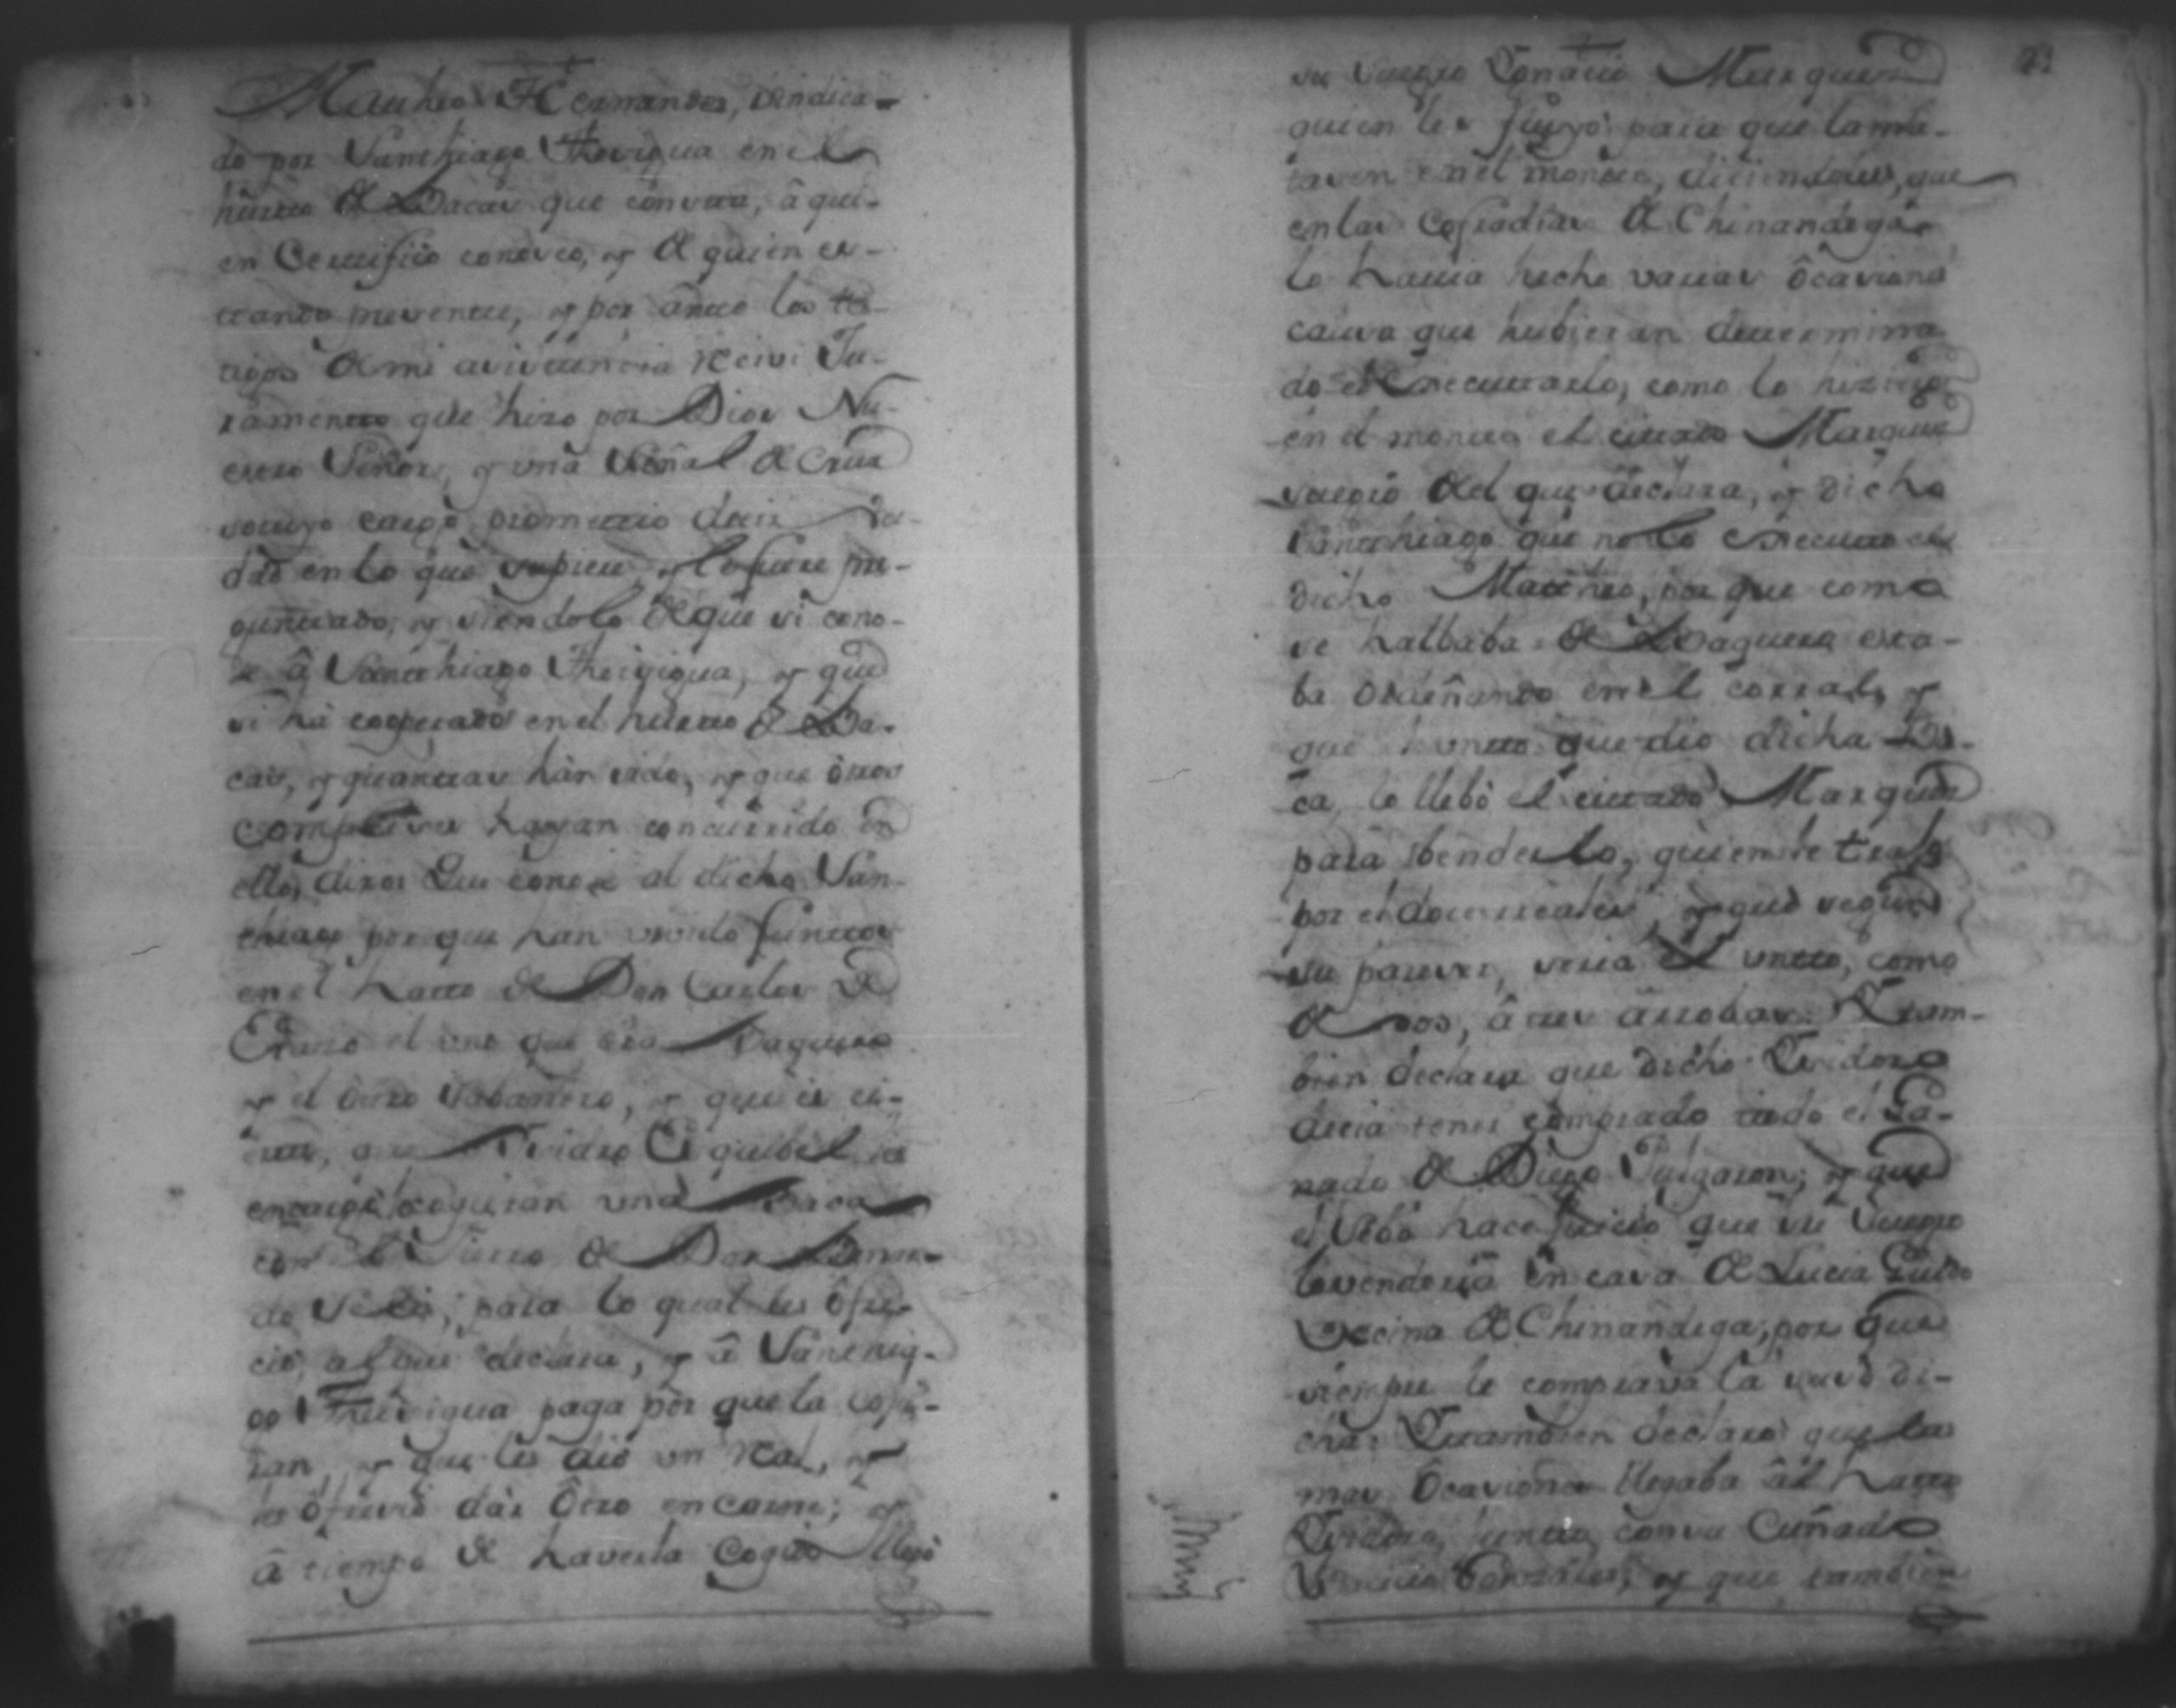 Matheo Hernandes, vindica-
do por Santhiago Theurigua en el
hurtto de Bacas que consta, â qui-
en Certtifico conosco, y de quien es-
ttando presentte, y por ântte los tes-
tigos de mi asisttencia recivi Ju-
ramentto que hizo por Dios Nu-
estro Señor, y una Señal de Cruz
so cuyo cargo promettio decir ver-
dad en lo que supiere, y le fuere pre-
gunttado, y siendolo de que si cono-
se â Santhiago Theurigua, y que
si há cooperado en el hurtto de Ba-
cas, y quanttas hán sido, y que ôttros
complises hayan concurrido en
ello, dixo: Que conose al dicho San-
thiago por que han vivido Junttos
en el hatto de Don Carlos de
Erazo el uno que era Baquero
y el ôttro Sabanero, y que es ci-
ertto, que Ysidro Esquibel les
encargó cogieran una Baca
con el Fierro de Don
do Velis, para lo qual les ôfre-
cio al que declara, y â Santhia-
go Theurigua paga por que la cojie-
ran, y que les dio un real, y
les ôfrecio dar ôtro en carne; y
â tiempo de haverla cogido llegó
su Suegro Ygnacio Marques
quien les siguyó para que la ma-
tasen en el montte, diciendoles, que
en las Cofradias de Chinandega
lo havia hecho varias ôcasiones
causa que hubieran determina-
do el executtarlo, como lo hizieron
en el montte el cittado Marques
suegro del que declara, y dicho
Santhiago que no lo execuctto el
dicho Mattheo, por que como
se hallaba de Baquero esta-
ba ordeñando en el corral, y
que el untto que dio dicha Ba-
ca, lo llebó el cittado Marques
para benderlo, quien le trajo
por el doce reales, y que segun
su pareser, seria el untto, como
de dos, â tres ârrobas. Ytam-
bien declara que dicho Ysidoro
decia tener comprado ttodo el Ga-
nado de Diego Pulgaron; y que
el Sebo hace Juicio que su Suegro
lo venderia en casa de Lucia Guido
Vecina de Chinandega, por que
siempre le comprava la suso di-
cha: Ytambien declaró que las
mas ôcasiones llegaba âl hatto
Ysidoro, juntto con su Cuñado
Gonzales, y que tambien